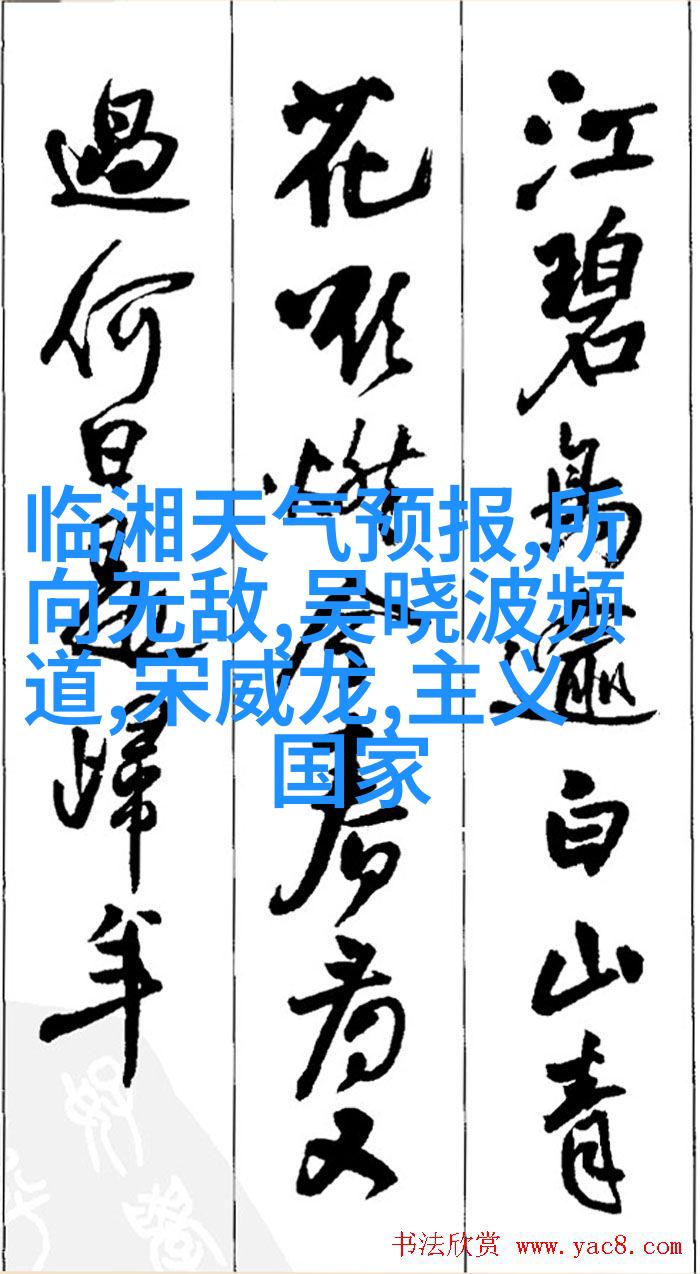 江碧鳥逾白山青
花欲燃今春看又
過何日是歸年
临湘天气预报,所
向无敌,吴晓波频
道,宋威龙,主义
国家
书法欣赏 www.yac8.com